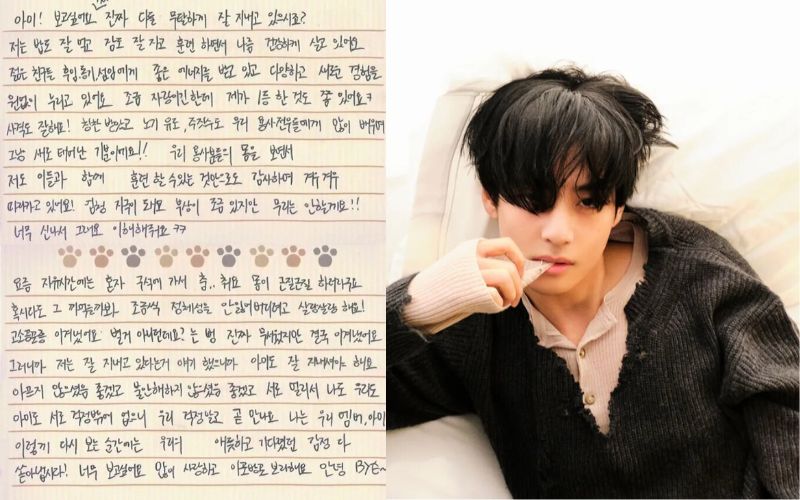 아미! 보고싶어요 진짜 다들 무탈하게 잘 지내고 있으시죠?
저는 밥도 잘 먹고 잠도 잘 자고 훈련 하면서 나름 건강하게 살고 있어요
젊은 친구들 후임, 동기, 선임에게 좋은 에너지를 받고 있고 다양하고 새로운 경험을
원없이 누리고 있어요 조금 자랑이긴한데 제가 1등 한 것도 좀 있어요ㅋ
사격도 잘해요! 칭찬 받았고 노기 유도, 주짓수도 우리 용사전우들에게 많이 배우며
그냥 새로 태어난 기분이에요!! 우리 용사분들의 몸을 보면서
저도 이들과 함께 훈련 할 수 있는 것만으로도 감사하며 겨우 겨우
따라가고 있어요! 김형 자쿠 도 부상이 조금 있지만 무리는 안할게요!!
너무 신나서 그래요 이해해줘요 ㅋㅋ
요즘 자유시간에는 혼자 구석에 가서 춤.. 춰요 몸이 근질근질 하더라구요
혹시라도 그 까먹을까봐 조금씩 정체성을 안잃어버리려고 살랑살랑 해요!
고소공포증 이겨냈어요 별거 아니던데요? 는 뻥 진짜 무서웠지만 결국 이겨냈어요
그러니까 저는 잘 지내고 있다는거 얘기 했으니까 아미도 잘 지내셔야 해요
아프지 않으셨음 좋겠고 불안해하지 않으셨음 좋겠고 서로 멀리서 나도 우리도
아미도 서로 걱정밖에 없으니 우리 걱정말고 곧 만나요 나는 우리 멤버, 아미
이렇게 다시 보는 순간에는 우리의 애틋하고 기다렸던 감정 다
쏟아냅시다! 너무 보고싶어요 많이 사랑하고 이로 보라해요 안녕 BYE~